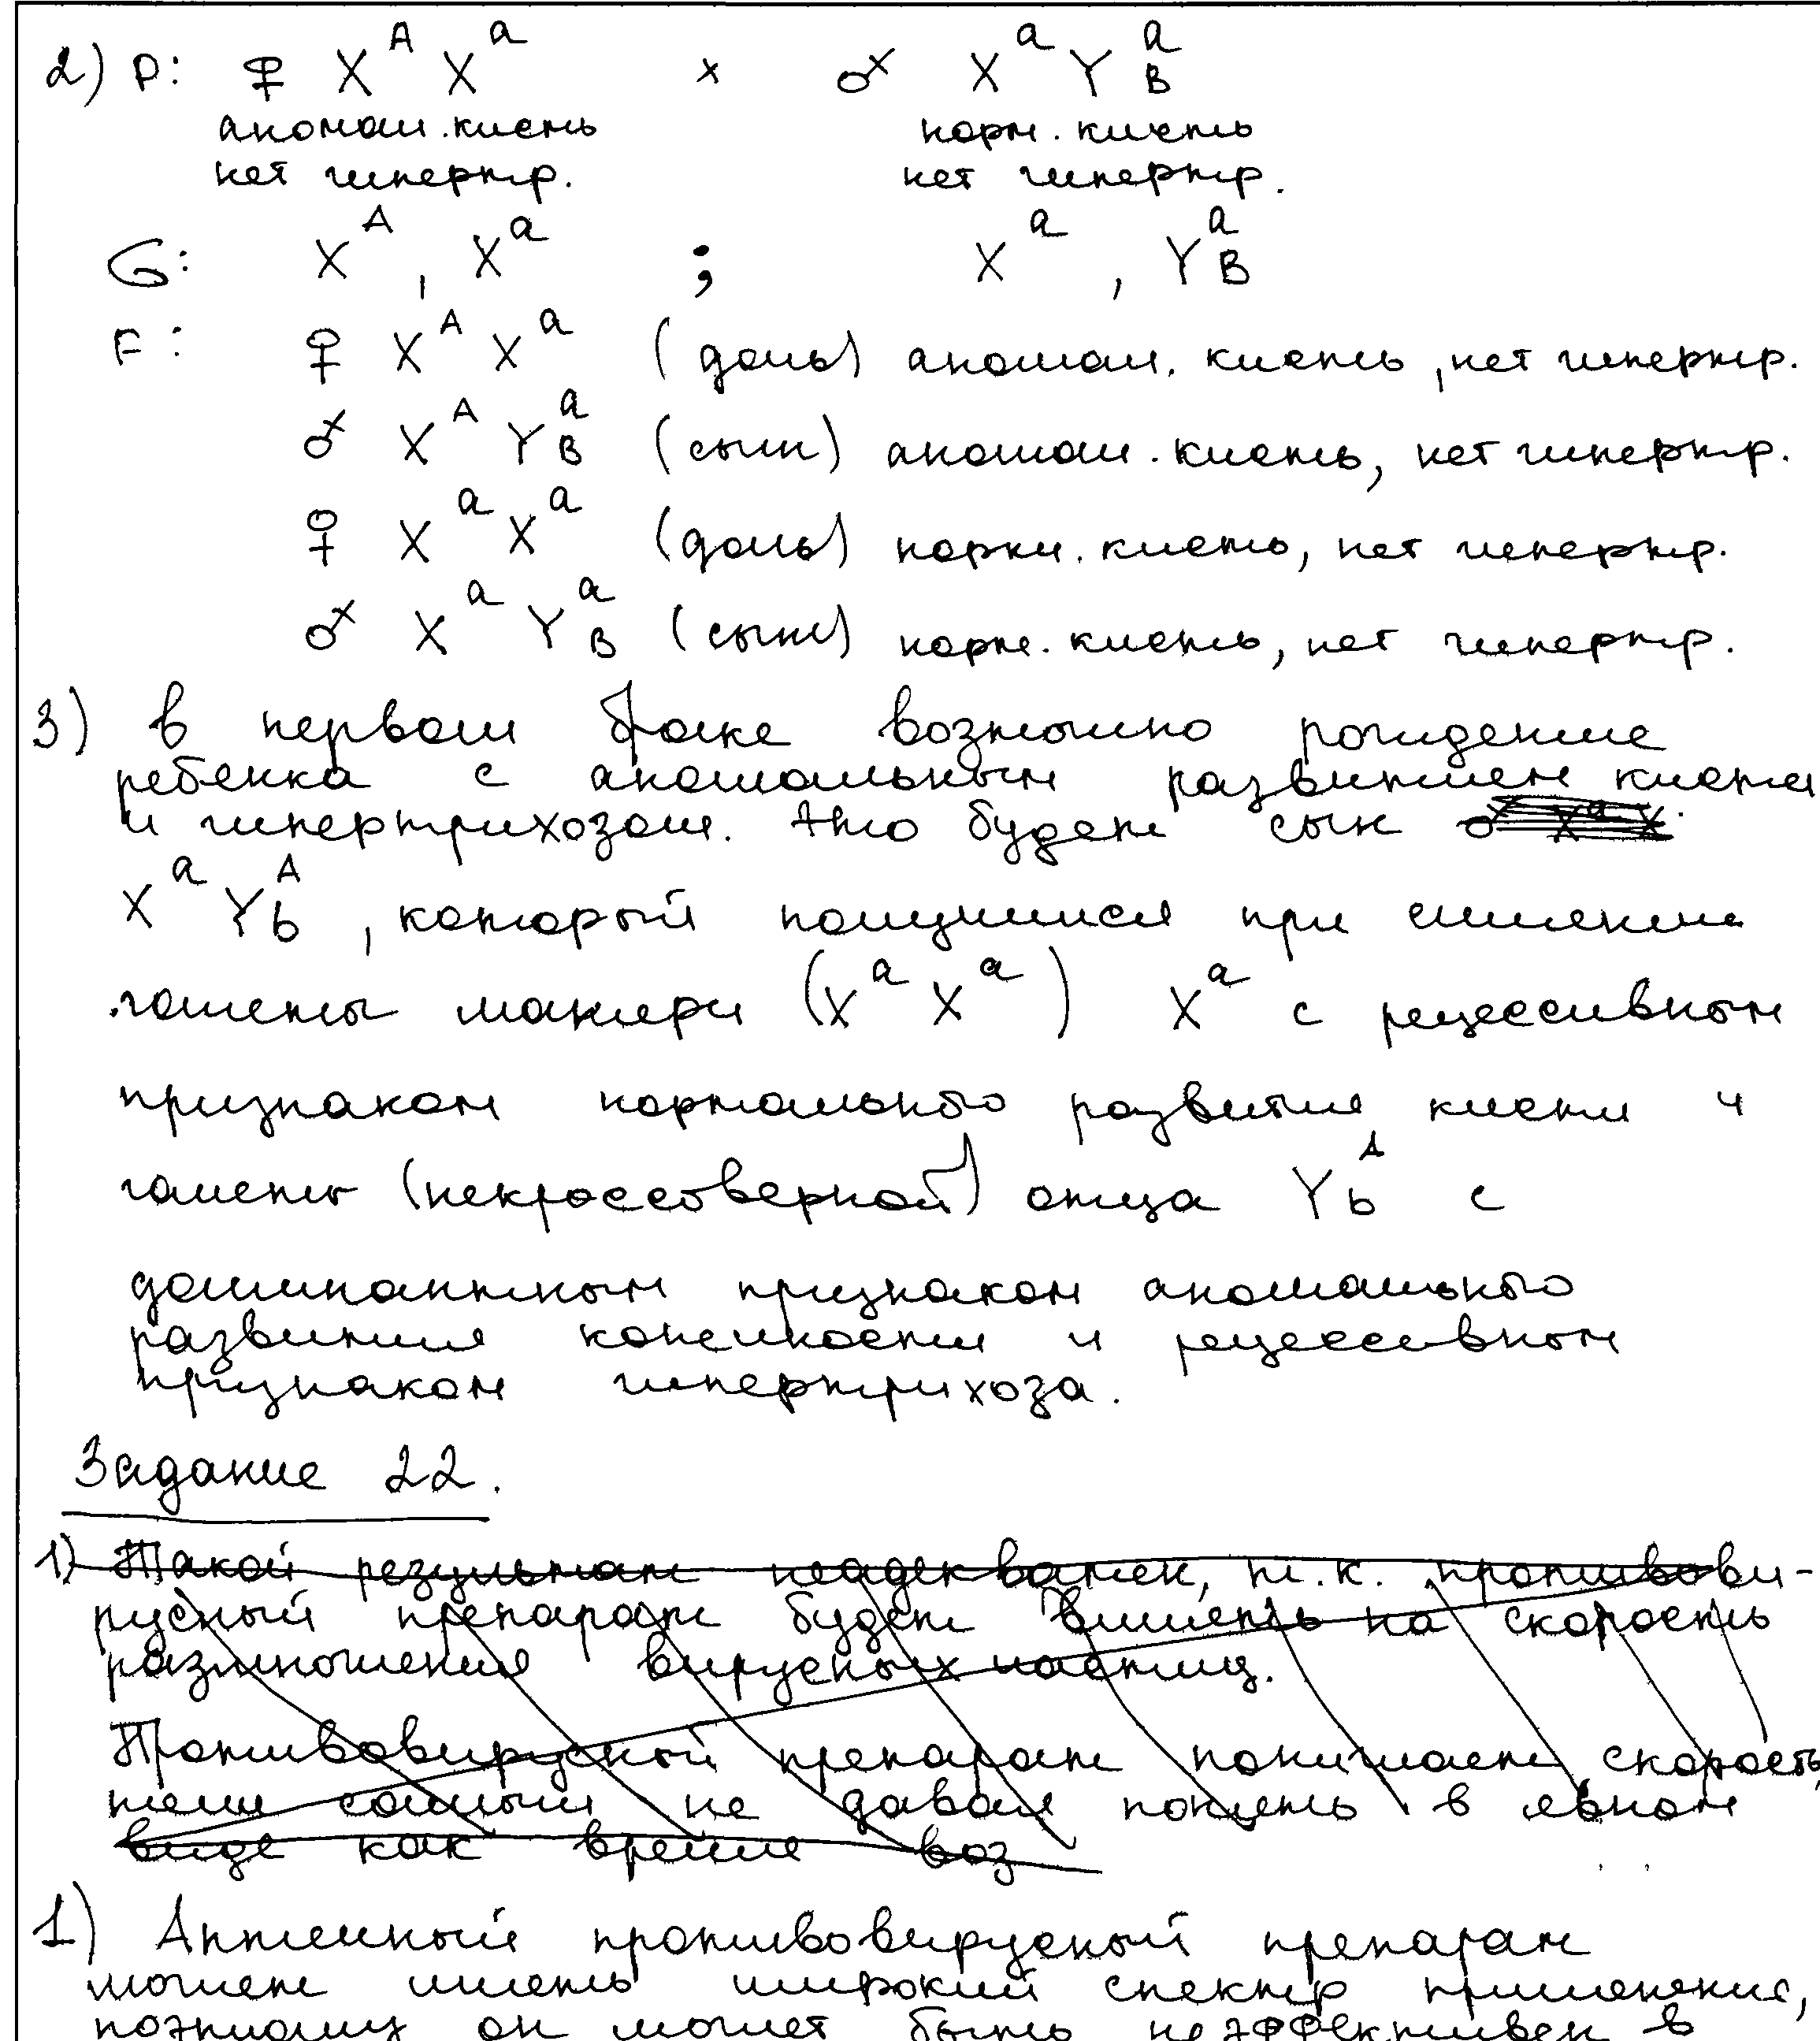 2) P: ♀ X^A X^a × ♂ X^a Y_B^a
аномал. кисть норм. кисть
нет гипертр. нет гипертр.
G: X^A, X^a ; X^a, Y_B^a
F: ♀ X^A X^a (дочь) аномал. кисть, нет гипертр.
♂ X^A Y_B^a (сын) аномал. кисть, нет гипертр.
♀ X^a X^a (дочь) норм. кисть, нет гипертр.
♂ X^a Y_B^a (сын) норм. кисть, нет гипертр.
3) В первом браке возможно рождение
ребенка с аномальным развитием кисти
и гипертрихозом. Это будет сын ♂ X^a X
X^a Y_b^A, который получился при слиянии
гаметы матери (X^a X^a) X^a с рецессивным
признаком нормального развития кисти и
гаметы (некроссоверной) отца Y_b^A с
доминантным признаком аномального
развития конечности и рецессивном
признаком гипертрихоза.
Задание 22.
1) Такой результат неадекватен, т.к. противови-
русный препарат будет влиять на скорость
размножения вирусных частиц.
Противовирусный препарат понижает скорость,
тем самым не давая понять в явном
виде как время воз
1) Аптечный противовирусный препарат
может иметь широкий спектр применения,
поэтому он может быть неэффективен в